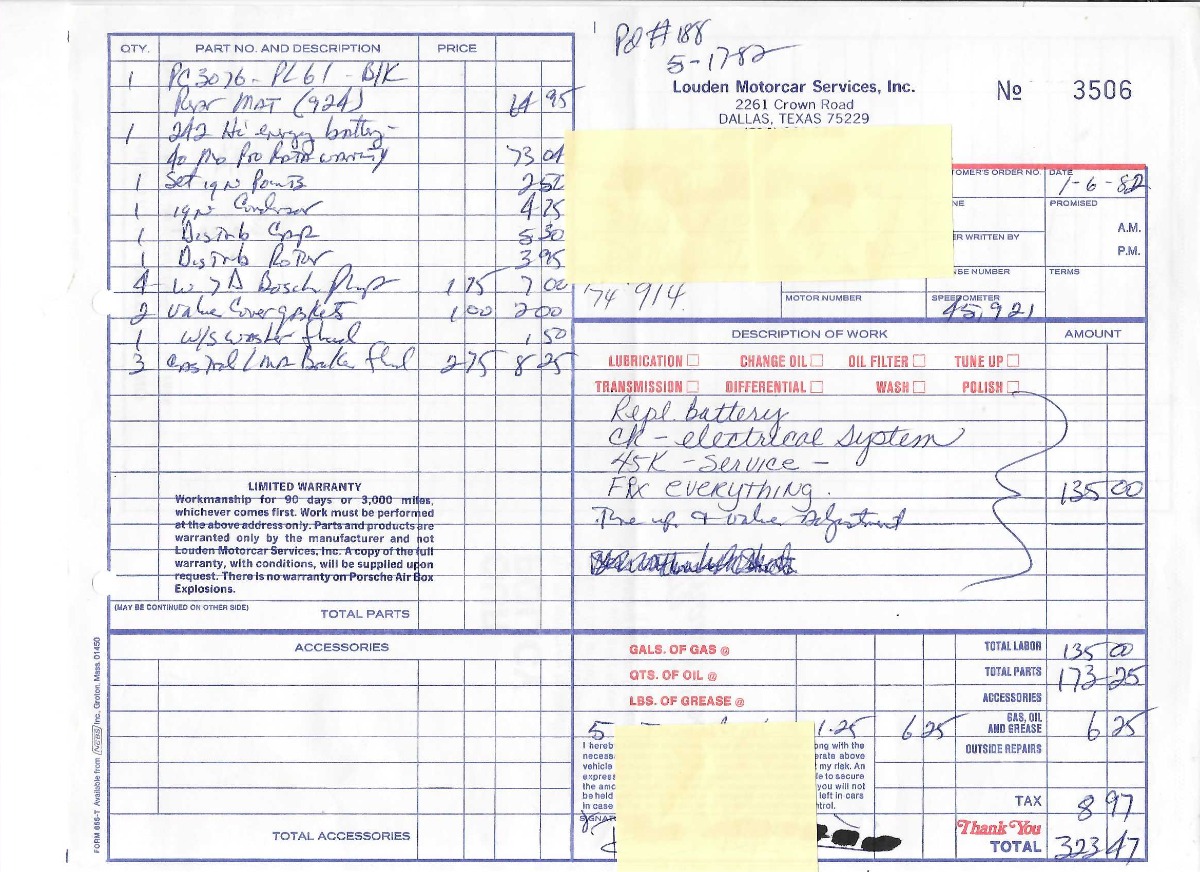 Pd # 188
5-17-82
Louden Motorcar Services, Inc.
2261 Crown Road
DALLAS, TEXAS 75229
No 3506
QTY. PART NO. AND DESCRIPTION PRICE
1 PC3076 - PL61 - Blk
Repr MAT (924) 64 95
1 242 Hi energy battery -
40 Mo Pro Rata warranty 73 04
1 Set ign Points 2 50
1 ign Condensor 4 75
1 Distrib Cap 5 30
1 Distrib Rotor 3 95
4 W7D Bosch Plugs 1 75 7 00
2 Valve Cover gaskets 1 00 2 00
1 w/s washer fluid 1 50
3 Castrol LMA Brake Fluid 2 75 8 25
LIMITED WARRANTY
Workmanship for 90 days or 3,000 miles,
whichever comes first. Work must be performed
at the above address only. Parts and products are
warranted only by the manufacturer and not
Louden Motorcar Services, Inc. A copy of the full
warranty, with conditions, will be supplied upon
request. There is no warranty on Porsche Air Box
Explosions.
(MAY BE CONTINUED ON OTHER SIDE) TOTAL PARTS
ACCESSORIES
TOTAL ACCESSORIES
FORM 655-T Available from NEBS Inc. Groton, Mass. 01450
OMER'S ORDER NO. DATE 1-6-82
NE PROMISED
A.M.
R WRITTEN BY P.M.
NSE NUMBER TERMS
'74 914 MOTOR NUMBER SPEEDOMETER 45,921
DESCRIPTION OF WORK AMOUNT
LUBRICATION CHANGE OIL OIL FILTER TUNE UP
TRANSMISSION DIFFERENTIAL WASH POLISH
Repl. battery
CK - electrical System
45K - Service -
FIX EVERYTHING. 135 00
Tune up & valve adjustment
GALS. OF GAS @ TOTAL LABOR 135 00
QTS. OF OIL @ TOTAL PARTS 173 25
LBS. OF GREASE @ ACCESSORIES
5 1.25 6 25 GAS, OIL AND GREASE 6 25
OUTSIDE REPAIRS
I hereb ong with the
necess erate above
vehicle my risk. An
expres le to secure
the amo you will not
be held left in cars
in case ntrol.
SIGNAT
TAX 8 97
Thank You
TOTAL 323 47